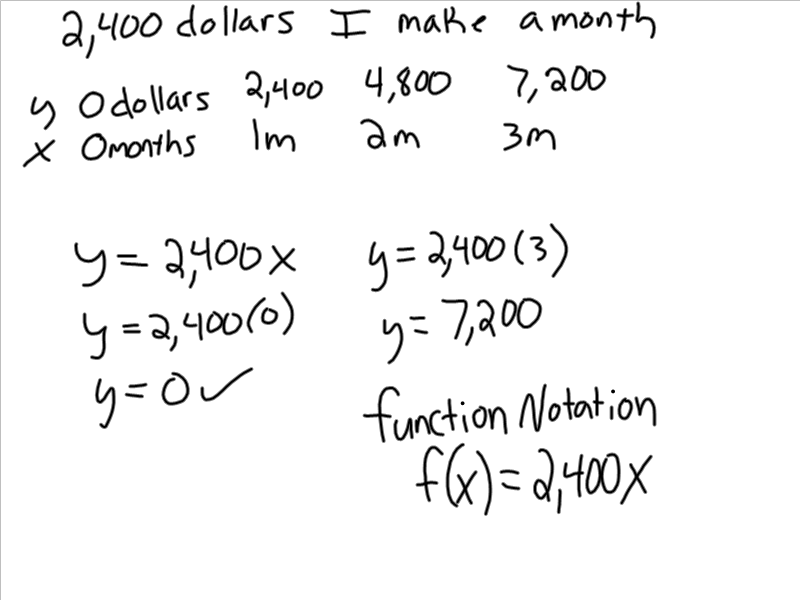 2,400 dollars I make a month
y 0 dollars 2,400 4,800 7,200
x 0 months 1m 2m 3m
y = 2,400x y = 2,400(3)
y = 2,400(0) y = 7,200
y = 0 ✓
function Notation
f(x) = 2,400x